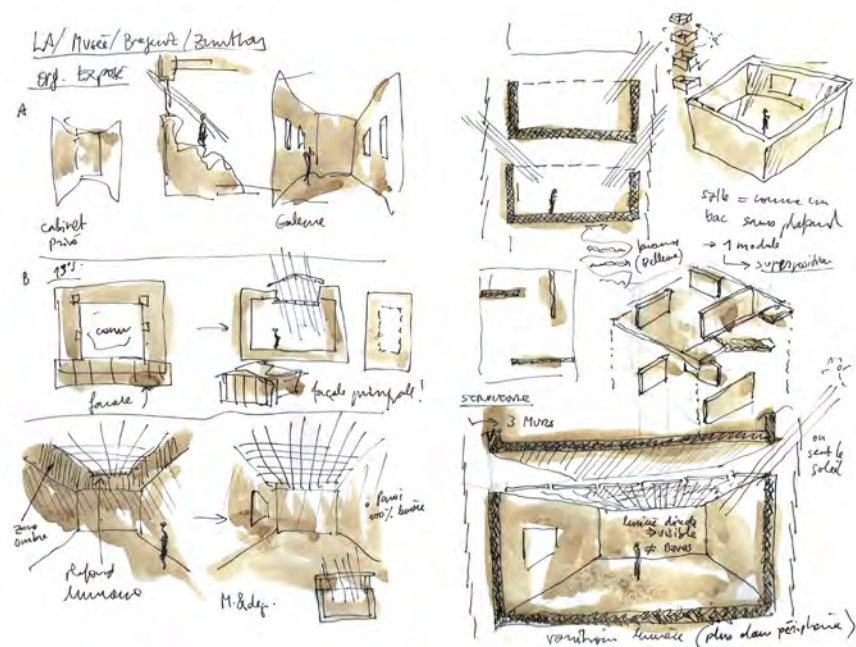 LA / Musée / Bregenz / Zumthor
org. Exposé
A
cabinet
privé
Galerie
B
cour
façade
façade principale !
zone
ombre
plafond
lumineux
Paroi
100% lumière
salle = comme un
bac sans plafond
→ 1 module
superposition
STRUCTURE
→ 3 MURS
on
sent le
soleil
lumière directe
→ visible
variation lumière (plus dans périphérie)